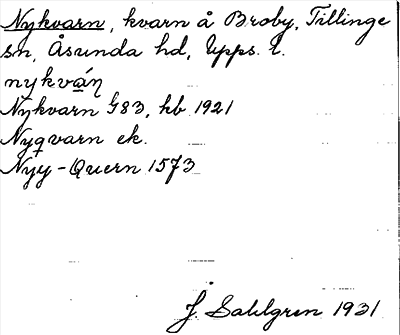 Nykvarn, kvarn å Broby, Tillinge
sn, Åsunda hd, Upps. l.
nykván
Nykvarn G83, kb 1921
Nyqvarn ek.
Nyy-Quern 1573
J Sahlgren 1931